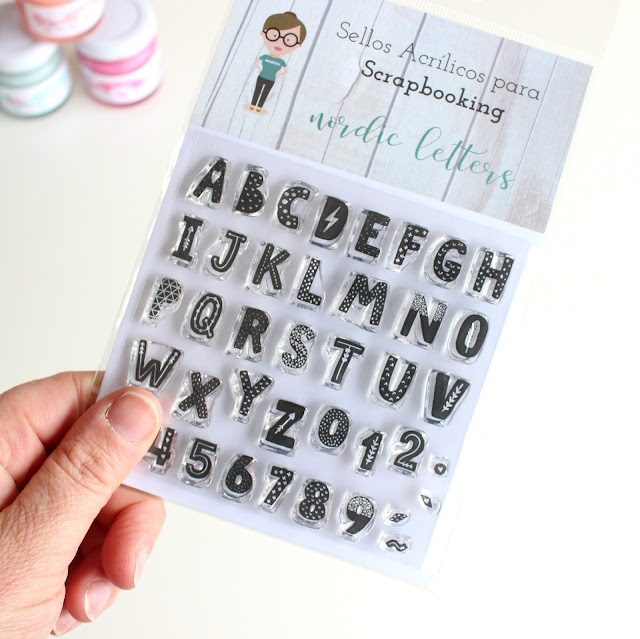 Sellos Acrílicos para
Scrapbooking
nordic letters
A B C D E F G H
I J K L M N O
P Q R S T U V
W X Y Z 0 1 2
4 5 6 7 8 9